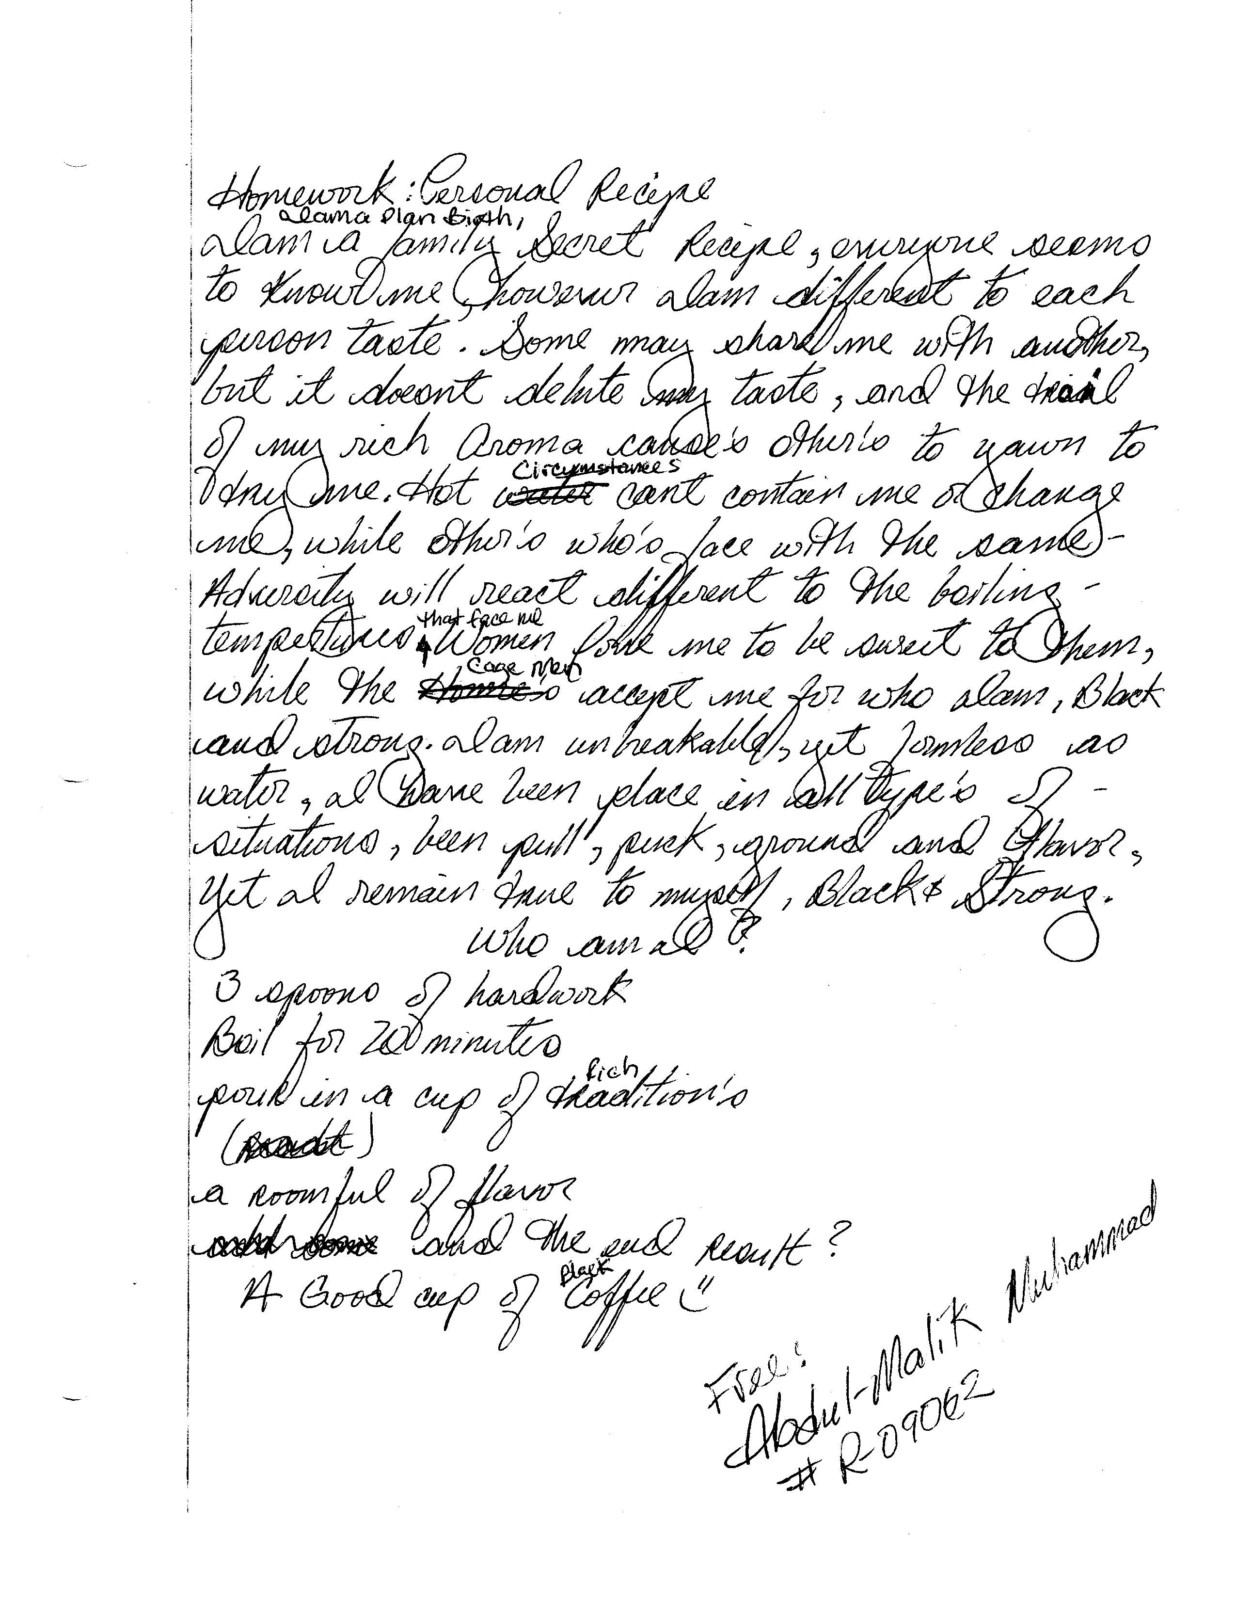 Homework: Personal Recipe
I am a plan Birth,
I am a family Secret Recipe, everyone seems
to know me, however I am different to each
person taste. Some may share me with another,
but it doesnt delute my taste, and the trail
of my rich Aroma cause's other's to yawn to
try me. Hot Circumstances cant contain me or change
me, while other's who's face with the same -
Adversity will react different to the boiling -
that face me
tempertures Women love me to be sweet to them,
while the Cage Men accept me for who I am, Black
and strong. I am unbreakable, yet formless as
water, I have been place in all type's of -
situations, been pull, pick, ground and flavor,
Yet I remain true to myself, Black & Strong.
Who am I?
3 spoons of hardwork
Boil for 20 minutes
pour in a cup of Rich tradition's
a roomful of flavor
and the end result?
A Good cup of Black Coffee
Free:
Abdul-Malik Muhammad
# R-09062